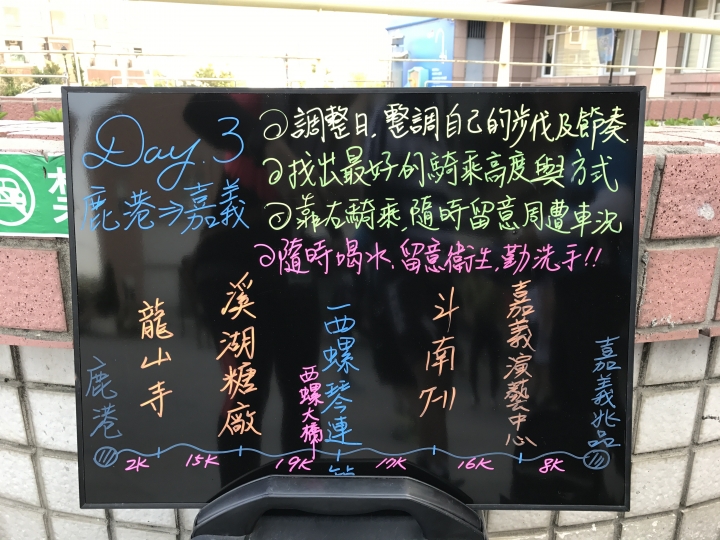 Day.3
鹿港⇒嘉義
調整日,整調自己的步伐及節奏
找出最好的騎乘高度與方式
靠右騎乘,隨時留意周遭車況
隨時喝水,留意衛生,勤洗手!!
鹿港
龍山寺
溪湖糖廠
西螺大橋
西螺琴連
斗南7-11
嘉義演藝中心
嘉義兆品
2K
15K
19K
17K
16K
8K
禁